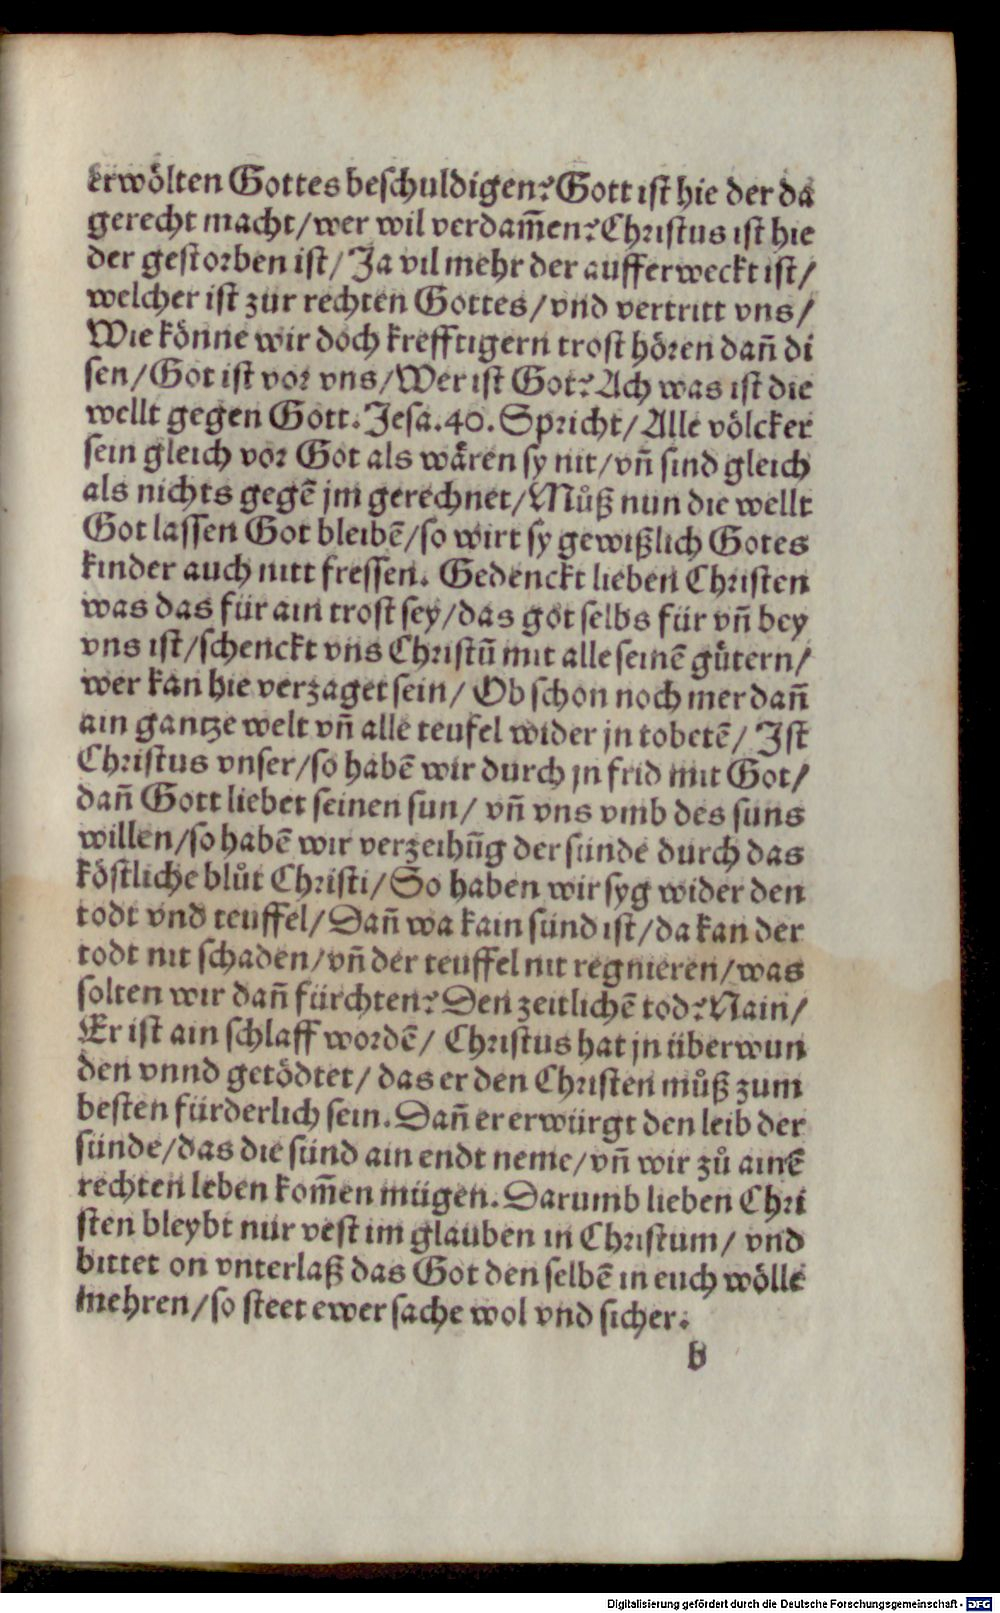 erwölten Gottes beschuldigen? Gott ist hie der da
gerecht macht/wer wil verdam̄en? Christus ist hie
der gestorben ist/ Ja vil mehr der aufferweckt ist/
welcher ist zur rechten Gottes/vnd vertritt vns/
Wie könne wir doch krefftigern trost hören dan̄ di
sen/Got ist vor vns/Wer ist Got? Ach was ist die
wellt gegen Gott. Jesa.40. Spricht/ Alle völcker
sein gleich vor Got als wären sy nit/vn̄ sind gleich
als nichts gegē jm gerechnet/Můß nun die wellt
Got lassen Got bleibē/so wirt sy gewißlich Gotes
kinder auch nitt fressen. Gedenckt lieben Christen
was das für ain trost sey/das got selbs für vn̄ bey
vns ist/schenckt vns Christū mit alle seinē gütern/
wer kan hie verzaget sein/ Ob schon noch mer dan̄
ain gantze welt vn̄ alle teufel wider jn tobetē/ Ist
Christus vnser/so habē wir durch jn frid mit Got/
dan̄ Gott liebet seinen sun/ vn̄ vns vmb des suns
willen/so habē wir verzeihūg der sünde durch das
köstliche blůt Christi/ So haben wir syg wider den
todt vnd teuffel/ Dan̄ wa kain sünd ist/da kan der
todt nit schaden/vn̄ der teuffel nit regnieren/was
solten wir dan̄ fürchten? Den zeitlichē tod? Nain/
Er ist ain schlaff wordē/ Christus hat jn überwun
den vnnd getödtet/ das er den Christen můß zum
besten fürderlich sein. Dan̄ er erwürgt den leib der
sünde/das die sünd ain endt neme/vn̄ wir zů ainē
rechten leben kom̄en mügen. Darumb lieben Chri
sten bleybt nur vest im glauben in Christum/ vnd
bittet on vnterlaß das Got den selbē in euch wölle
mehren/so steet ewer sache wol vnd sicher.
b
Digitalisierung gefördert durch die Deutsche Forschungsgemeinschaft - DFG